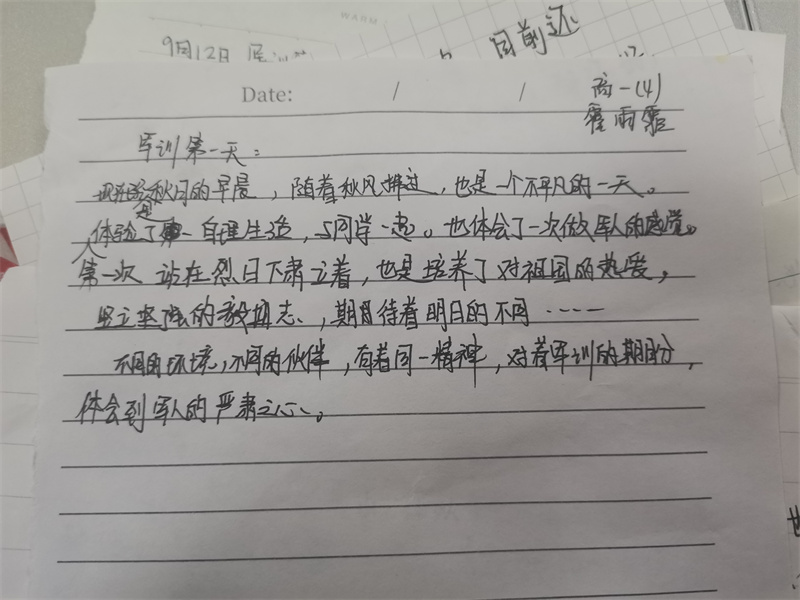 WARM
9月12日
目前还
Date: / /
高一(4)
霍雨霏
军训第一天：
秋日的早晨，随着秋风拂过，也是一个不平凡的一天。
体验了 自理生活，与同学一起。也体会了一次做军人的感觉。
第一次 站在烈日下肃立着，也是培养了对祖国的热爱，
竖立坚强的毅 志、，期待着明日的不同……
不同的环境，不同的伙伴，有着同一精神，对着军训的期盼，
体会到军人的严肃之心、。